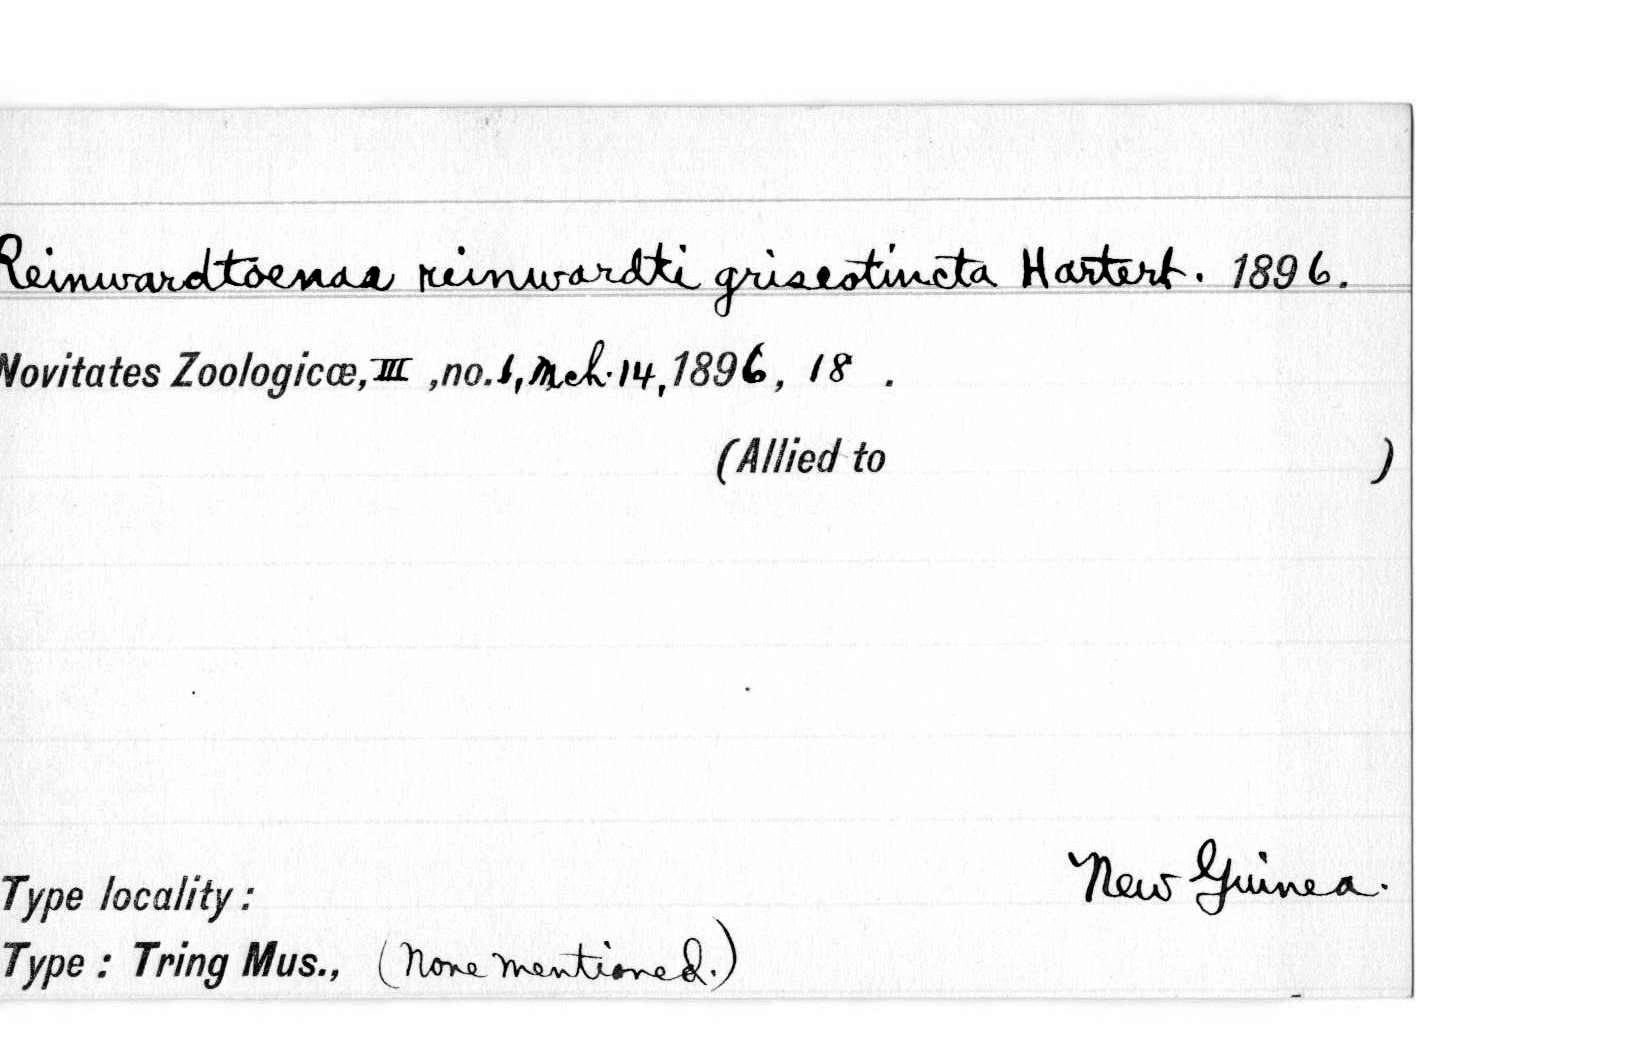 Reinwardtoenas reinwardti griseotincta Hartert. 1896.
Novitates Zoologicæ, III , no. 1, Mch. 14, 1896, 18 .
(Allied to )
New Guinea.
Type locality :
Type : Tring Mus., (None mentioned.)